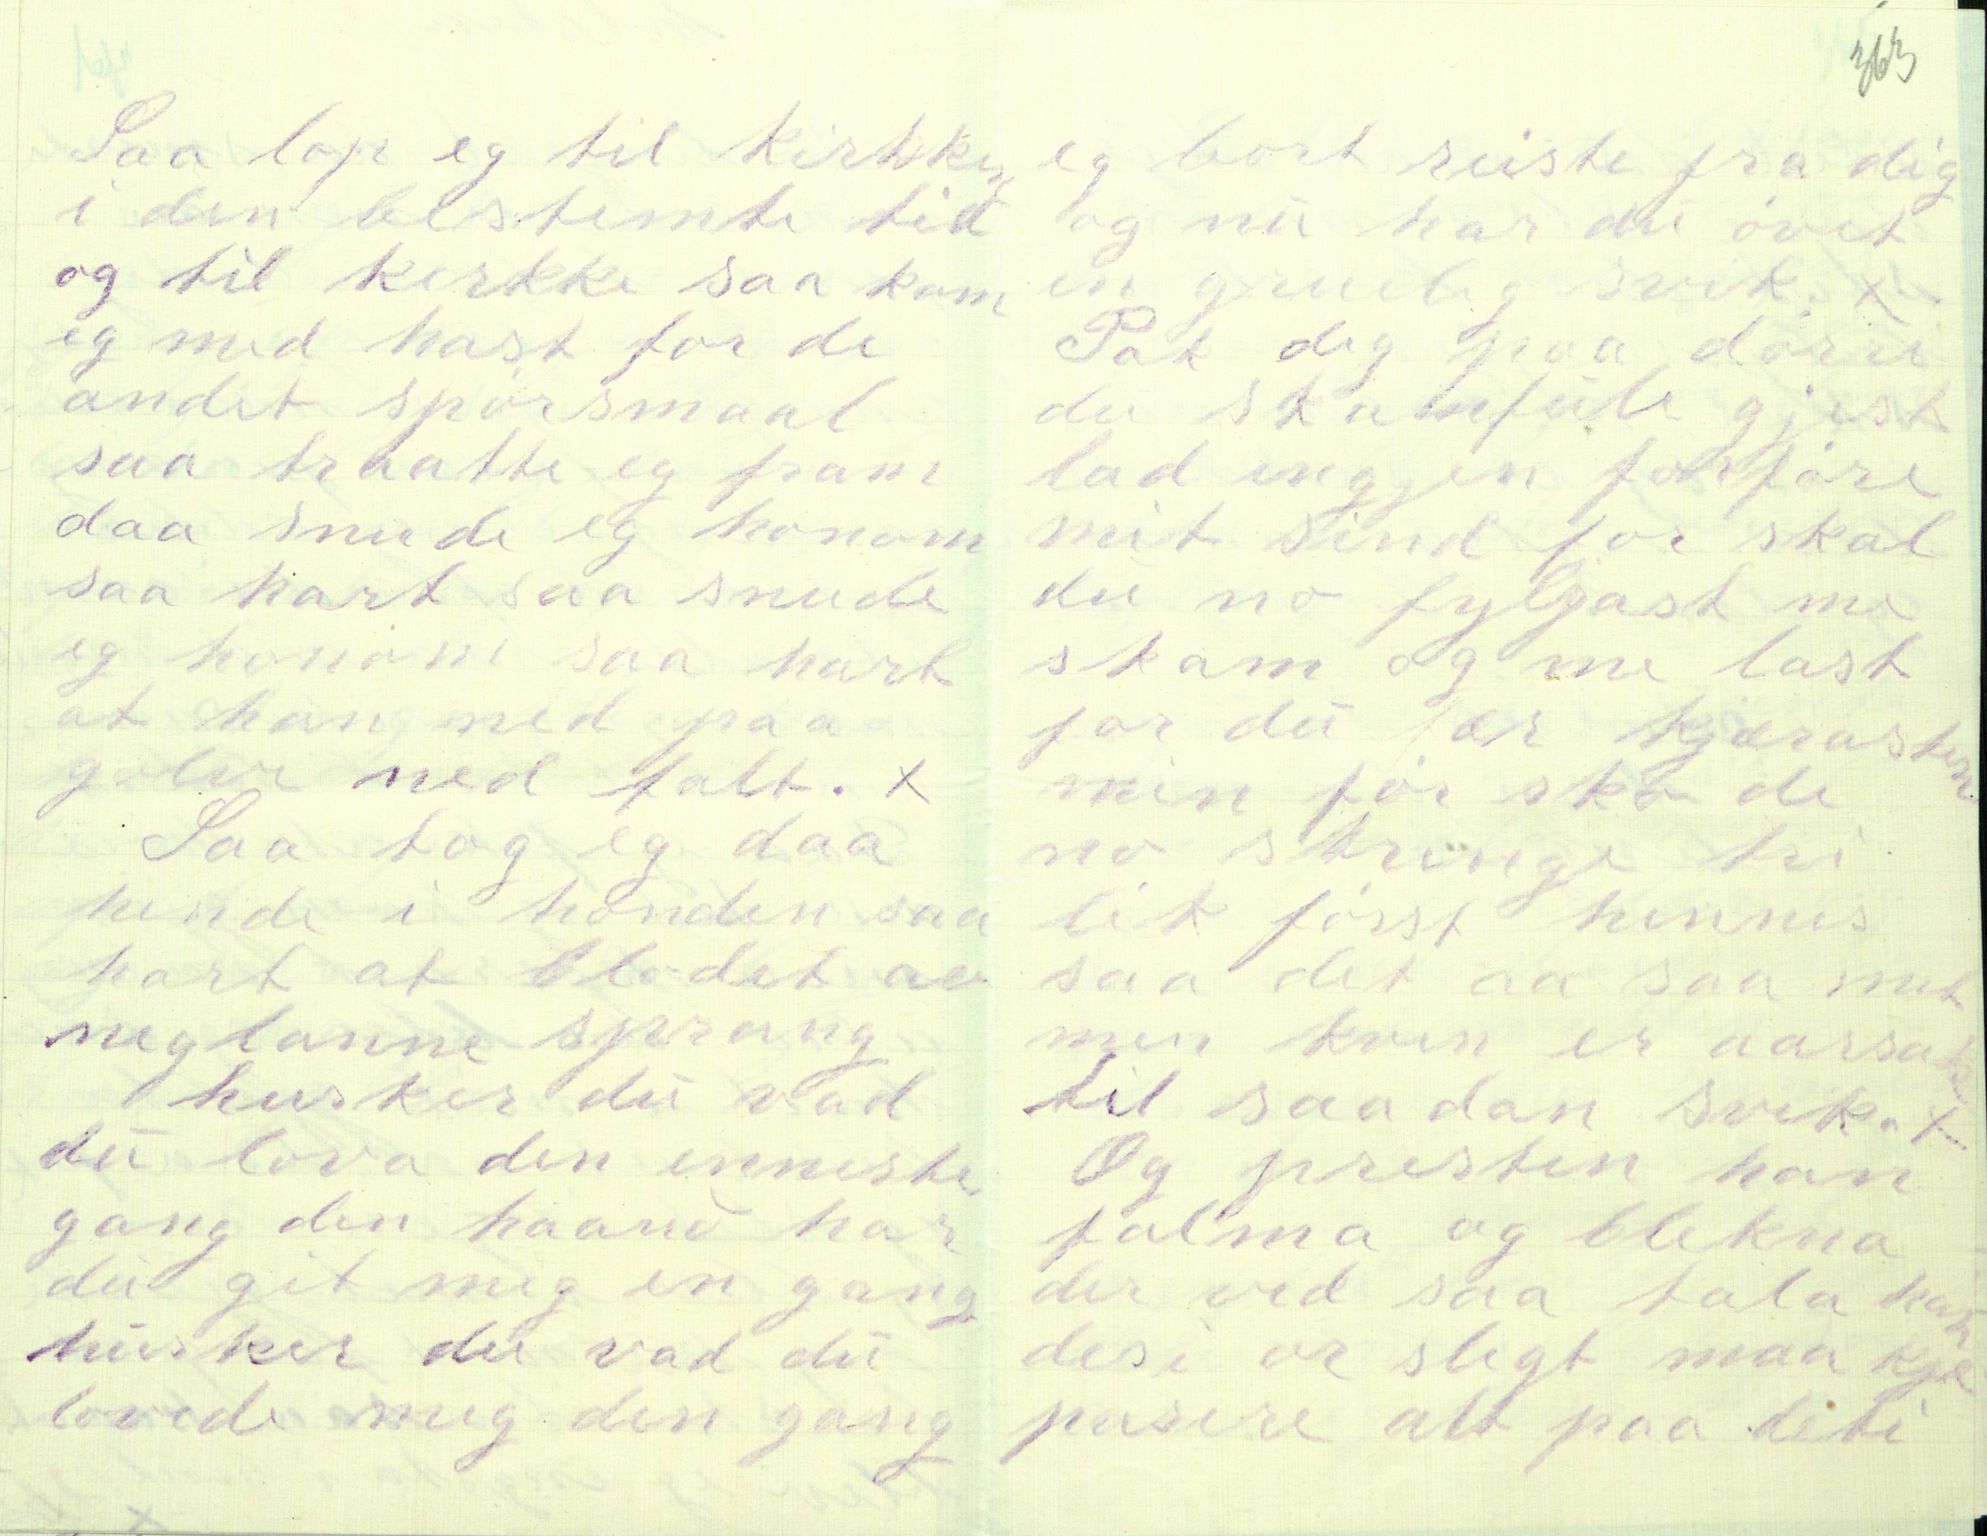 363
Saa lop eg til kirkke
i den bestemte tid
og til kerkke saa kom
eg med hast for de
andet spørsmaal
saa traatte eg fram
daa snude eg honom
saa hart saa snude
eg honom saa hart
at han ned paa
golve ned falt. x
Saa tog eg daa
hende i honden saa
hart at blodet av
neglanne sprang
husker du vad
du lova den enneste
gang den haand har
du git meg en gang
husker du vad du
lovede mig den gang
eg bort reiste fra dig
og nu har du øvet
en gruelig svik. x
Pak dig paa dørri
du skamfule gjest
lad engjen forføre
mit sind for skal
du no fyljast me
skam og me last
for du fær kjærasten
min før sko de
no stringe tri
lik først hennes
saa det aa saa mit
men kven er aarsake
til saadan svik. x
Og presten han
falma og blekna
der ved saa tala han
desi or sligt maa kje
pasere alt paa deti